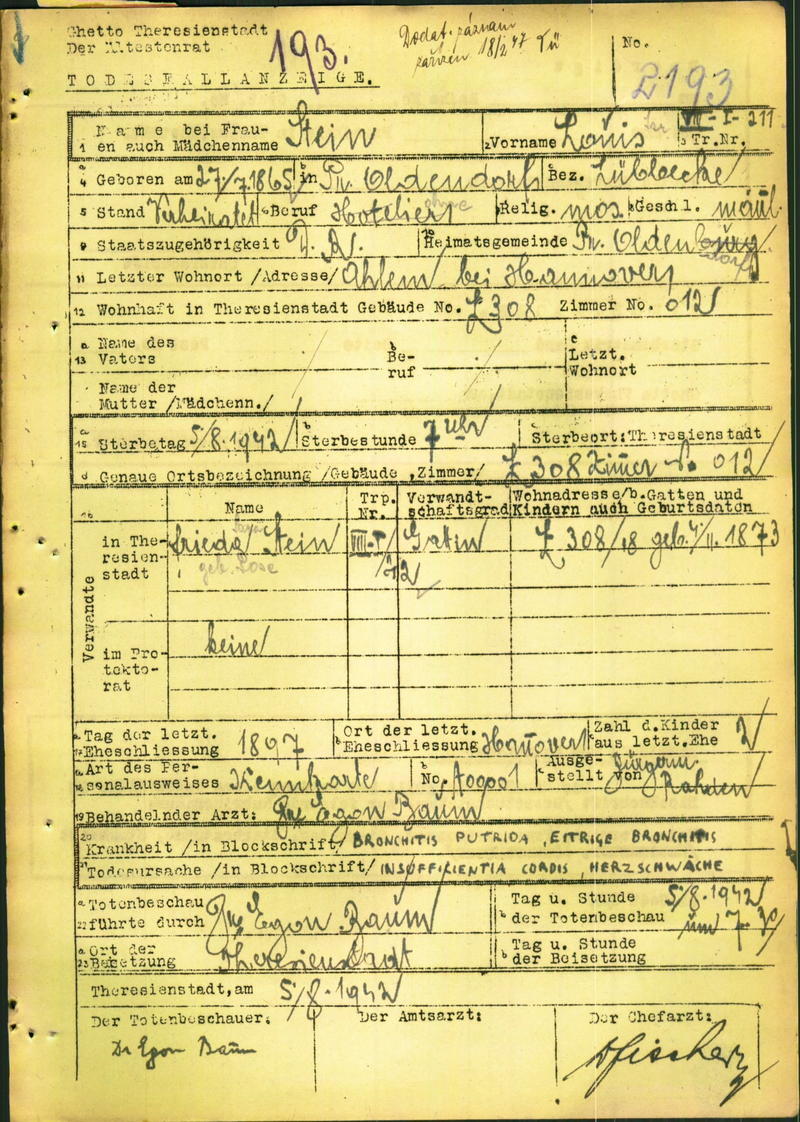 Ghetto Theresienstadt
Der Ältestenrat
193.
Dodat. záznam
zařízen 18/2 47
No.
2193
TODESFALLANZEIGE.
VIII-I-211
1 Name bei Frau-
en auch Mädchenname Stein
2 Vorname Louis
3 Tr.Nr.
4 a Geboren am 27/7.1865 b in Pr. Oldendorf c Bez. Lübbecke
5 Stand Verheiratet 6 Beruf Hotelier ohne 7 Relig. mos. 8 Geschl. mänl.
9 Staatszugehörigkeit D. R. 10 Heimatsgemeinde Pr. Oldenburg
dorf
11 Letzter Wohnort /Adresse/ Ahlem bei Hannover
12 Wohnhaft in Theresienstadt Gebäude No. L 308 Zimmer No. 012
13 a Name des
Vaters
b Be-
ruf
c Letzt.
Wohnort
Name der
Mutter /Mädchenn./
15 a Sterbetag 5/8.1942 b Sterbestunde 7 Uhr c Sterbeort: Theresienstadt
d Genaue Ortsbezeichnung /Gebäude, Zimmer/ L 308 Zimer No 012
16 Name
Trp.
Nr.
Verwandt-
schaftsgrad
Wohnadresse/b.Gatten und
Kindern auch Geburtsdaten
Verwandte
in The-
resien-
stadt
Frieda Sara Stein VIII-I/ Gatin L 308/18 geb. 4/11. 1873
geb. Lose 212
im Pro-
tekto-
rat
keine
17 a Tag der letzt.
Eheschliessung 1897
b Ort der letzt.
Eheschliessung Hannover
c Zahl d.Kinder
aus letzt.Ehe 2
18 a Art des Per-
sonalausweises Kennkarte
b No. A00001
c Ausge-
stellt von Bürgerm. Rahden
19 Behandelnder Arzt: Dr. Egon Baum
20 Krankheit /in Blockschrift/ BRONCHITIS PUTRIDA, EITRIGE BRONCHITIS
21 Todesursache /in Blockschrift/ INSUFFICIENTIA CORDIS, HERZSCHWÄCHE
22 a Totenbeschau
führte durch Dr. Egon Baum
b Tag u. Stunde
der Totenbeschau 5/8.1942
um 7.30
23 a Ort der
Beisetzung Theresienstadt
b Tag u. Stunde
der Beisetzung
Theresienstadt, am 5/8.1942
Der Totenbeschauer: Der Amtsarzt: Der Chefarzt:
Dr Egon Baum